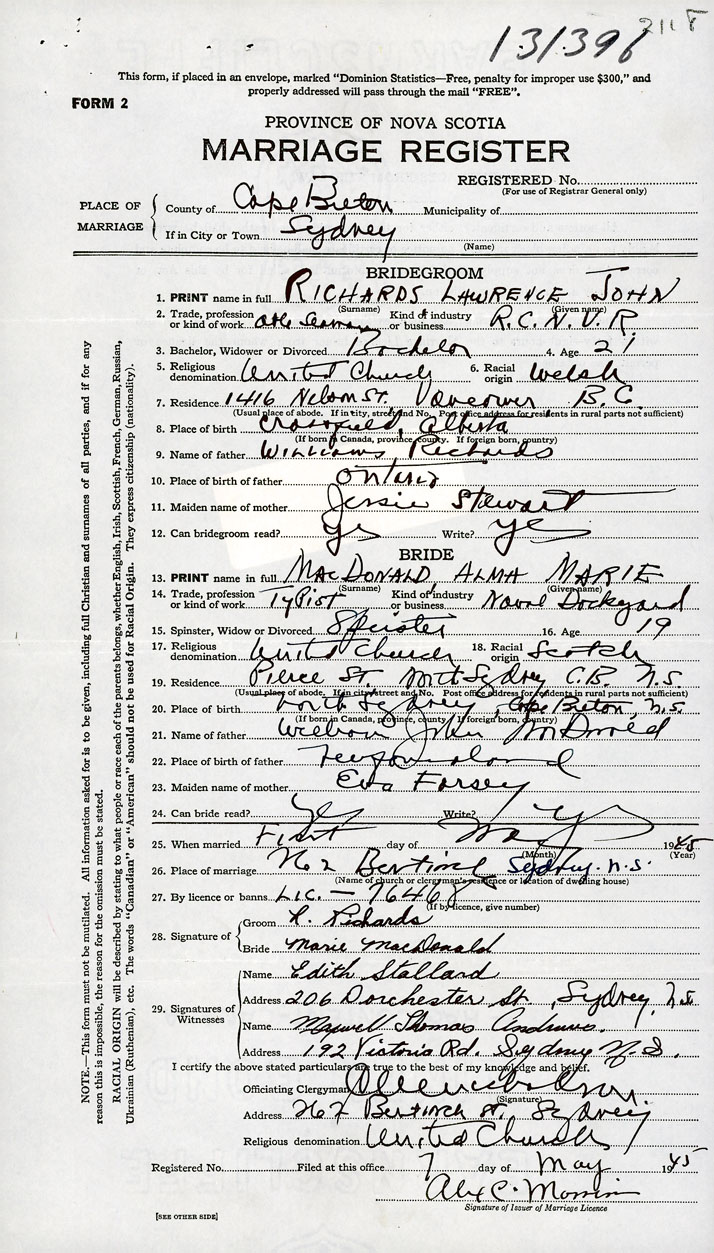 131396 2118
This form, if placed in an envelope, marked “Dominion Statistics—Free, penalty for improper use $300,” and
properly addressed will pass through the mail “FREE”.
FORM 2
PROVINCE OF NOVA SCOTIA
MARRIAGE REGISTER
REGISTERED No.
(For use of Registrar General only)
PLACE OF MARRIAGE
County of Cape Breton Municipality of
If in City or Town Sydney
(Name)
BRIDEGROOM
1. PRINT name in full RICHARDS LAWRENCE JOHN
(Surname) (Given name)
2. Trade, profession or kind of work able Seaman Kind of industry or business R.C.N.V.R.
3. Bachelor, Widower or Divorced Bachelor 4. Age 21
5. Religious denomination United Church 6. Racial origin Welsh
7. Residence 1416 Nelson St. Vancouver B.C.
(Usual place of abode. If in city, street and No. Post office address for residents in rural parts not sufficient)
8. Place of birth Crossfield, Alberta
(If born in Canada, province, county. If foreign born, country)
9. Name of father Williams Richards
10. Place of birth of father Ontario
11. Maiden name of mother Jessie Stewart
12. Can bridegroom read? Yes Write? Yes
BRIDE
13. PRINT name in full MACDONALD, ALMA MARIE
(Surname) (Given name)
14. Trade, profession or kind of work Typist Kind of industry or business Naval Dockyard
15. Spinster, Widow or Divorced Spinster 16. Age 19
17. Religious denomination United Church 18. Racial origin Scotch
19. Residence Pierce St. North Sydney C.B. N.S.
(Usual place of abode. If in city, street and No. Post office address for residents in rural parts not sufficient)
20. Place of birth North Sydney, Cape Breton, N.S.
(If born in Canada, province, county. If foreign born, country)
21. Name of father John McDonald
22. Place of birth of father Newfoundland
23. Maiden name of mother Eva Forsey
24. Can bride read? Yes Write? Yes
25. When married First day of May 1945
(Month) (Year)
26. Place of marriage No 2 Sydney. N.S.
(Name of church or clergyman's residence or location of dwelling house)
27. By licence or banns Lic. — 76468
(If by licence, give number)
28. Signature of
Groom Richards
Bride Marie MacDonald
29. Signatures of Witnesses
Name Edith Stallard
Address 206 Dorchester St., Sydney, N.S.
Name Maxwell Thomas Andrews.
Address 192 Victoria Rd. Sydney N.S.
I certify the above stated particulars are true to the best of my knowledge and belief.
Officiating Clergyman
(Signature)
Address No 2 St. Sydney
Religious denomination United Church
Registered No. Filed at this office 7 day of May 1945
Alex C.
Signature of Issuer of Marriage Licence
[SEE OTHER SIDE]
NOTE.—This form must not be mutilated. All information asked for is to be given, including full Christian and surnames of all parties, and if for any
reason this is impossible, the reason for the omission must be stated.
RACIAL ORIGIN will be described by stating to what people or race each of the parents belongs, whether English, Irish, Scottish, French, German, Russian,
Ukrainian (Ruthenian), etc. The words “Canadian” or “American” should not be used for Racial Origin. They express citizenship (nationality).